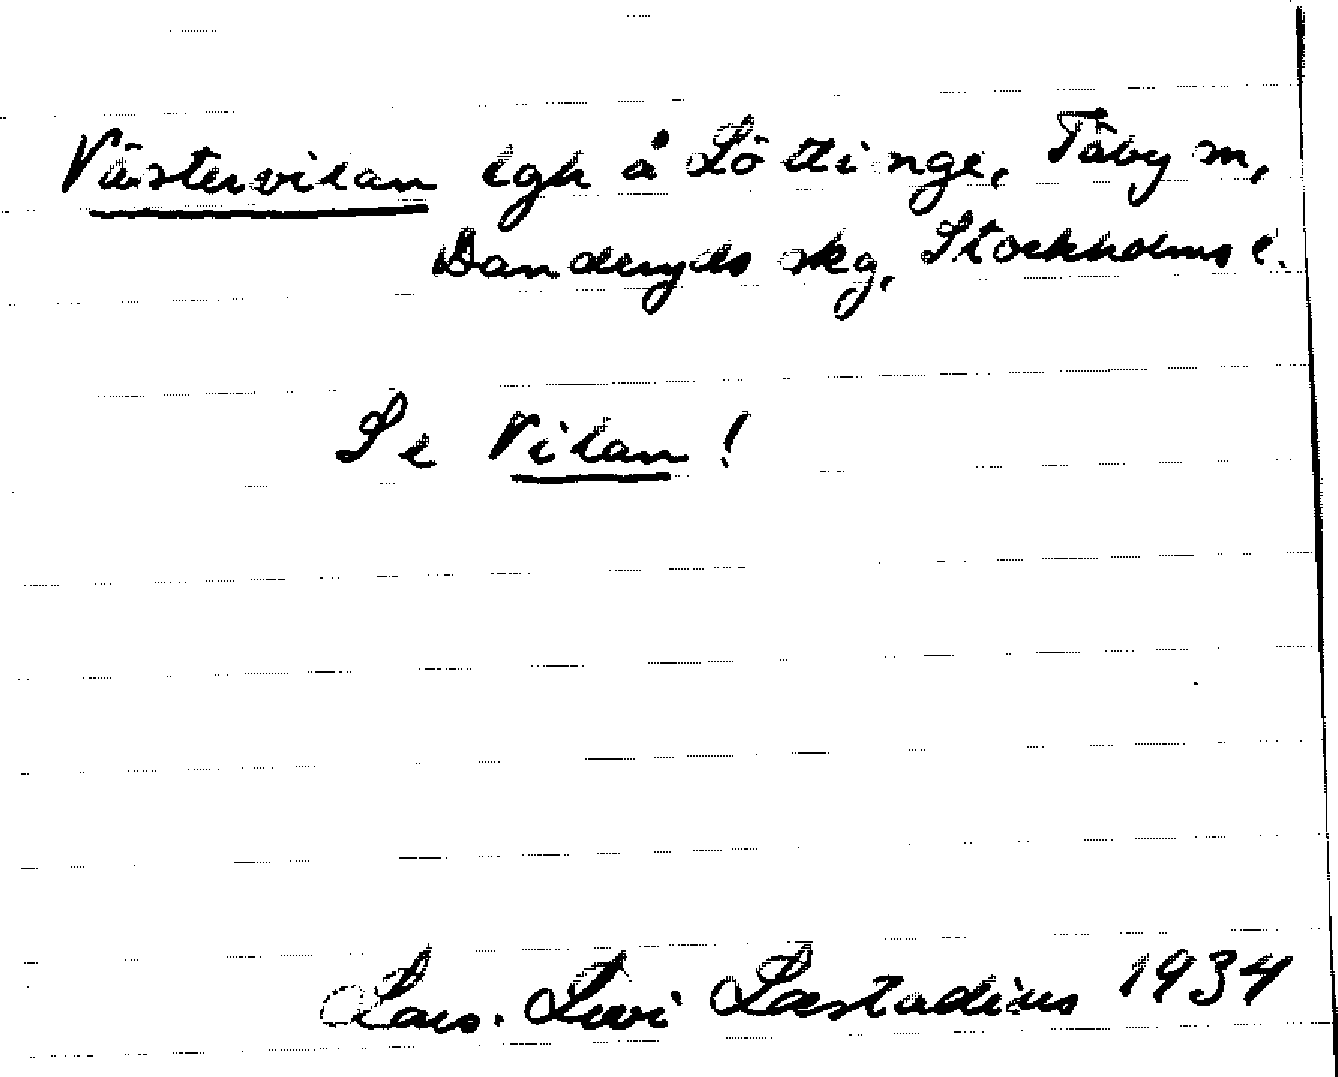 Västervilan lgh å Löttinge, Täby sn,
Danderyds skg, Stockholms l.
Se Vilan!
Lars-Levi Læstadius 1934